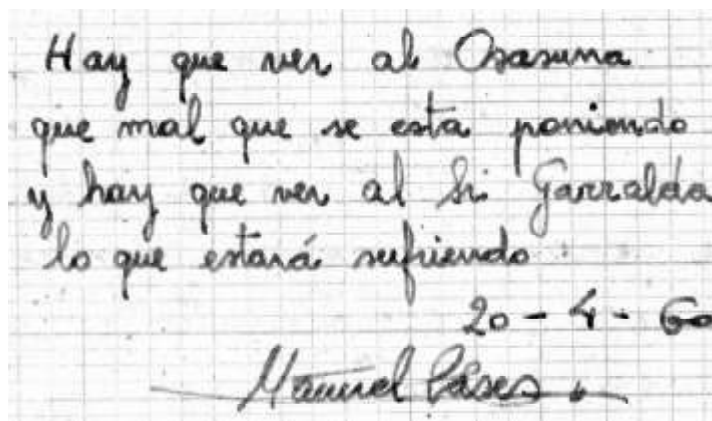 Hay que ver al Osasuna
que mal que se esta poniendo
y hay que ver al Sr. Garralda
lo que estará sufriendo
20 - 4 - 60
Manuel